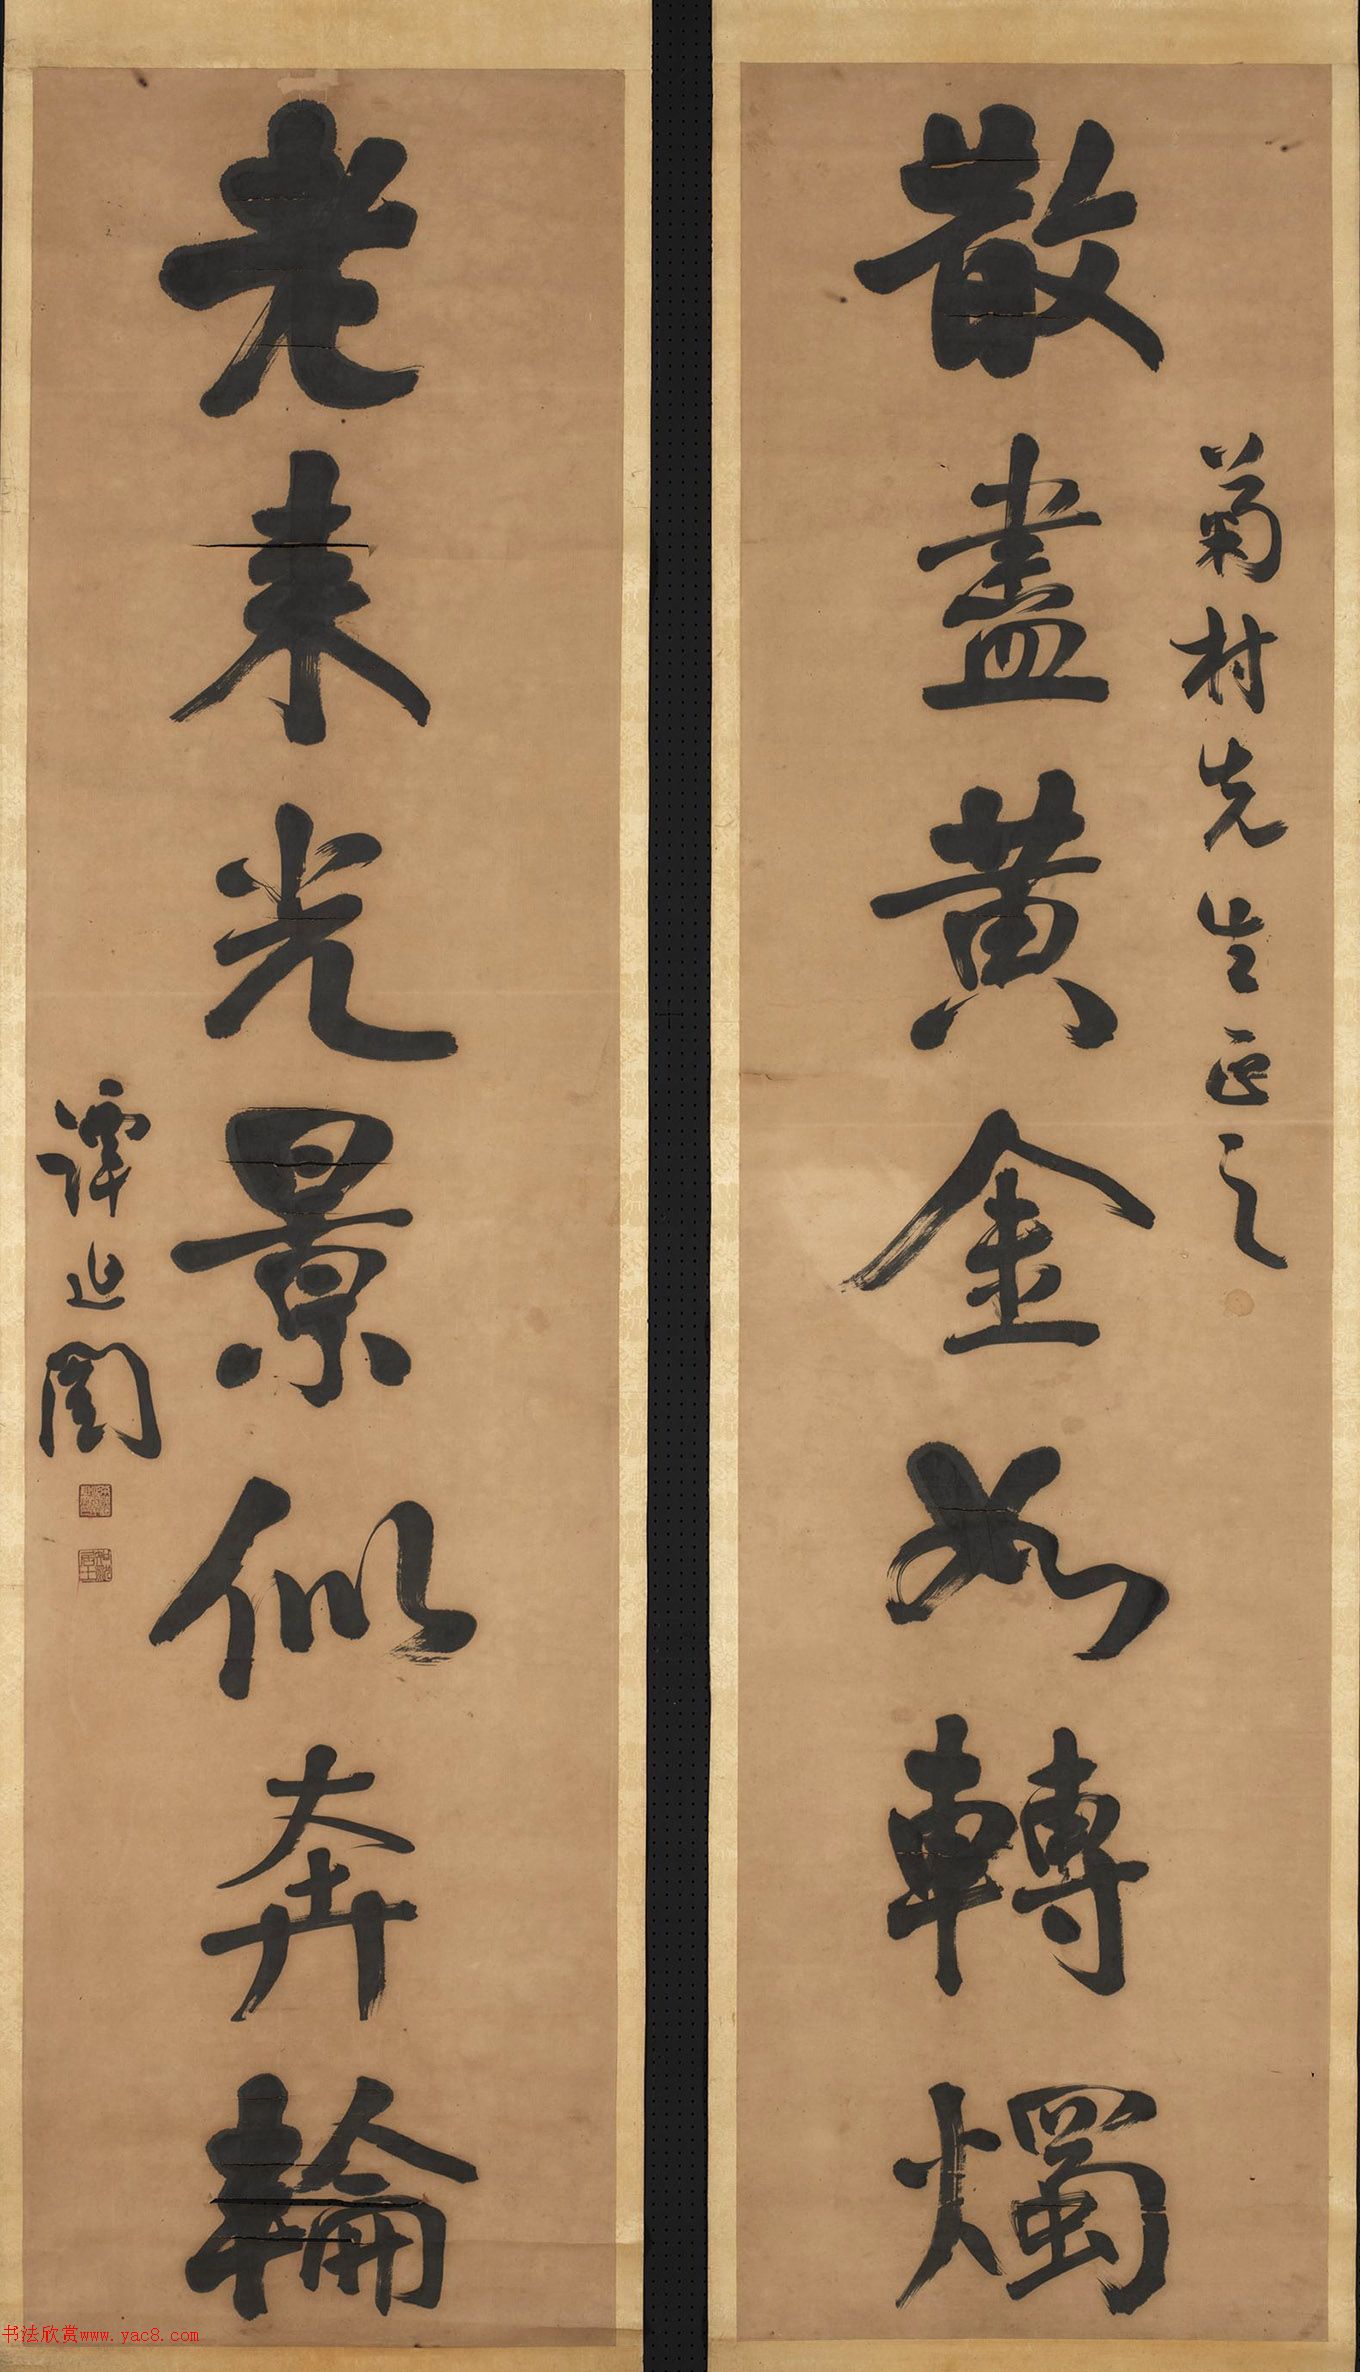 菊村先生正之
散盡黄金如轉燭
老来光景似奔輪
譚延闓
书法欣赏www.yac8.com